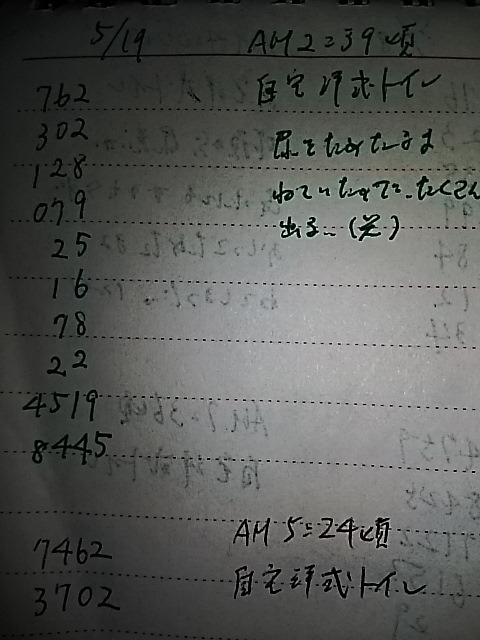 5/19 AM2:39頃
762 自宅洋式トイレ
302 尿をためたまま
128 ねていたので、たくさん
079 出る…(笑)
25
16
78
22
4519
8445
AM5:24頃
7462 自宅洋式トイレ
3702